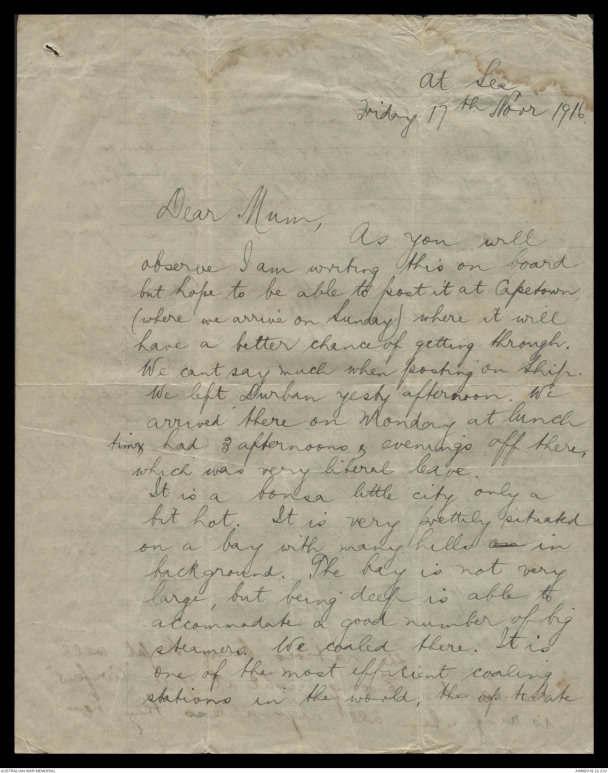 At Sea
Friday 17th Novr 1916.
Dear Mum,
As you will
observe I am writing this on board
but hope to be able to post it at Capetown,
(where we arrive on Sunday) where it will
have a better chance of getting through.
We cant say much when posting on ship.
We left Durban yesty afternoon. We
arrived there on Monday at lunch
time & had 3 afternoons & evenings off there,
which was very liberal leave.
It is a bonsa little city only a
bit hot. It is very prettily situated
on a bay with many hills in
background. The bay is not very
large, but being deep is able to
accommodate a good number of big
steamers. We coaled there. It is
one of the most efficient coaling
stations in the world, the up to date
AUSTRALIAN WAR MEMORIAL